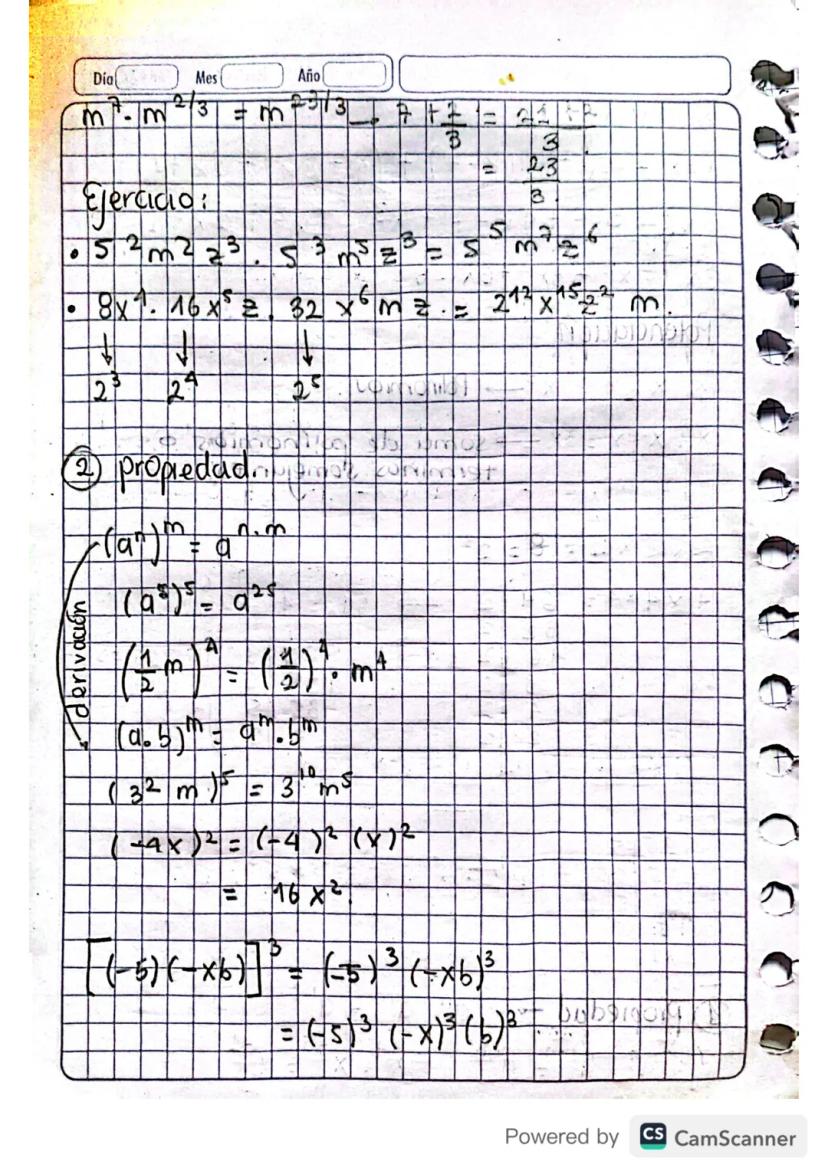 Día Mes Año
m^7 · m^{2/3} = m^{23/3} → 7 + 2/3 = 21+2/3
= 23/3
Ejercicio:
• 5^2 m^2 z^3 · 5^3 m^5 z^3 = 5^5 m^7 z^6
• 8x^4 · 16x^5 z · 32 x^6 m z · = 2^{12} x^{15} z^2 m.
↓ ↓ ↓
2^3 2^4 2^5
② propiedad.
(a^n)^m = a^{n·m}
derivación
(a^5)^5 = a^{25}
(1/2 m)^4 = (1/2)^4 · m^4
(a·b)^m = a^m · b^m
(3^2 m)^5 = 3^{10} m^5
(-4x)^2 = (-4)^2 (x)^2
= 16 x^2.
[(-5)(-xb)]^3 = (-5)^3 (-xb)^3
= (-5)^3 (-x)^3 (b)^3
Powered by CS CamScanner